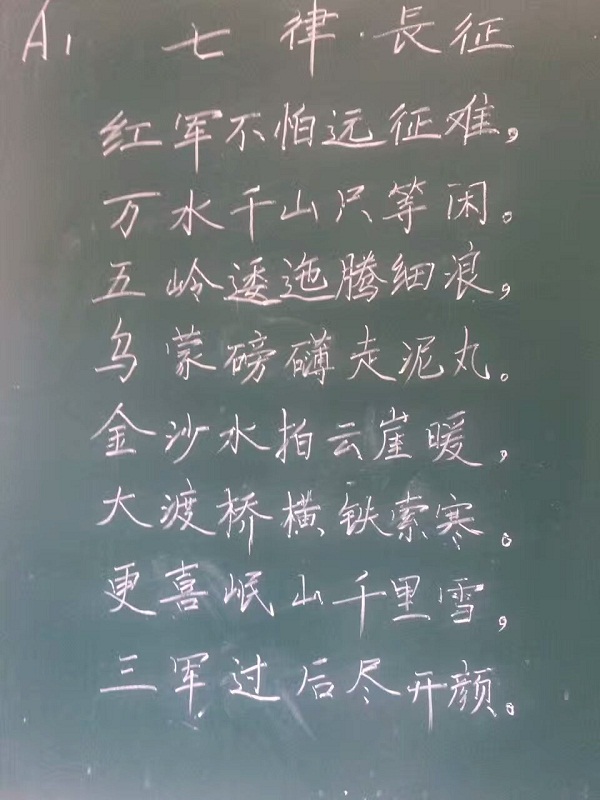 A1 七律·長征
红军不怕远征难，
万水千山只等闲。
五岭逶迤腾细浪，
乌蒙磅礴走泥丸。
金沙水拍云崖暖，
大渡桥横铁索寒。
更喜岷山千里雪，
三军过后尽开颜。